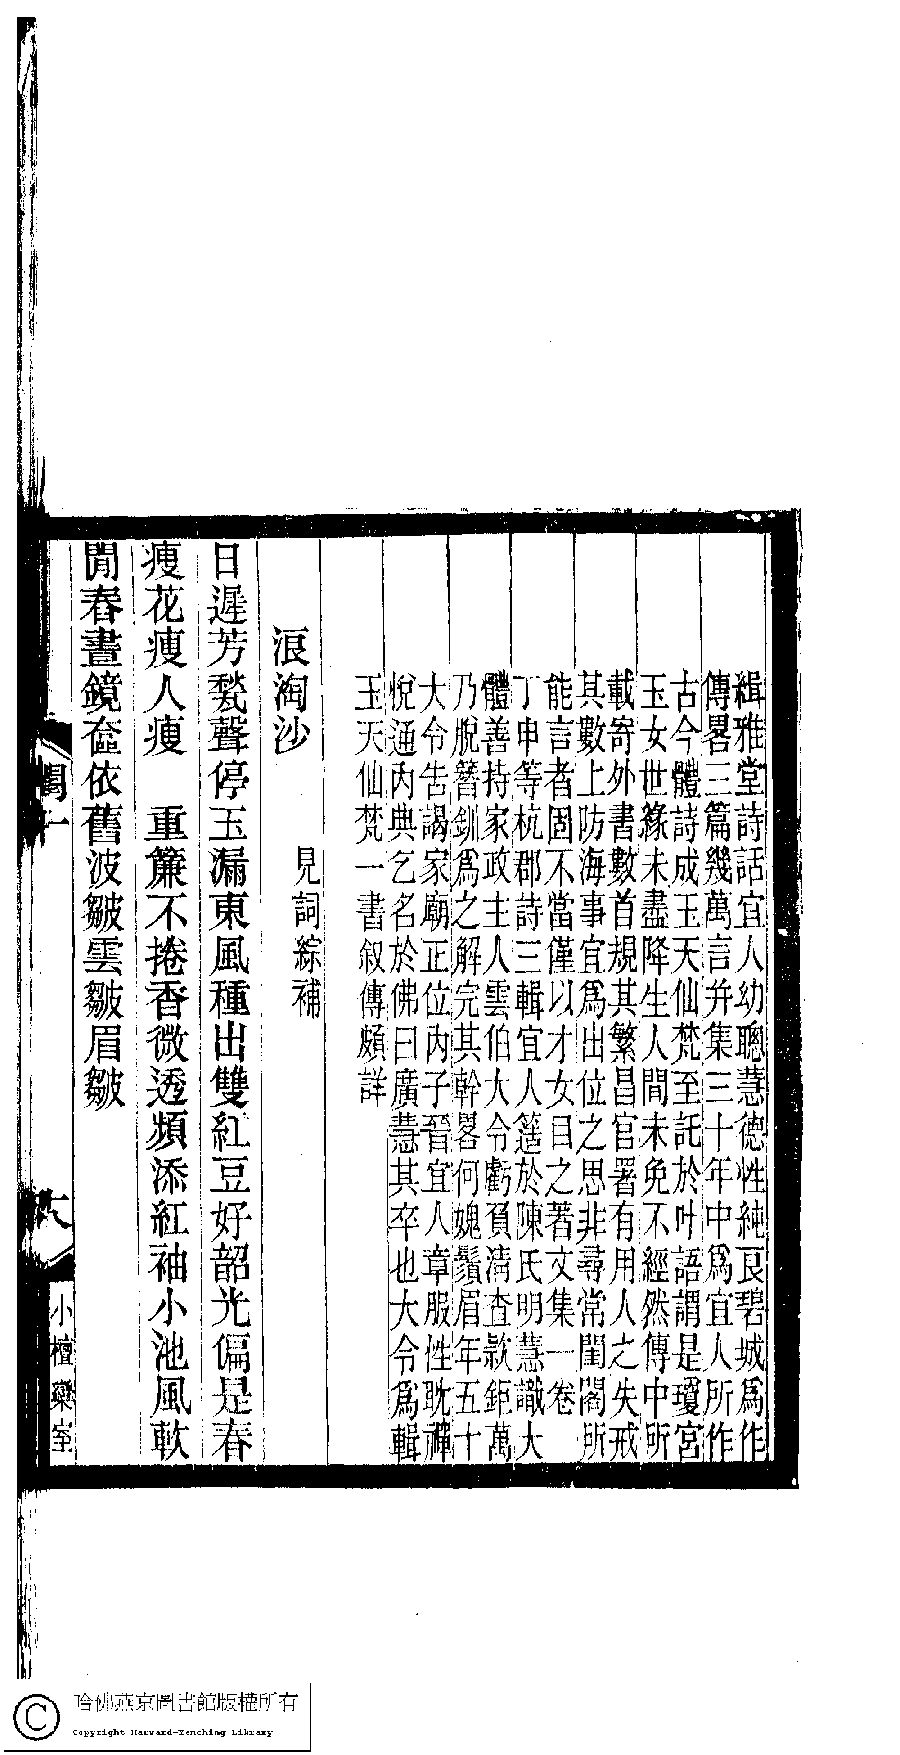 緝雅堂詩話宜人幼聰慧德性純良碧城爲作
傳畧三篇幾萬言幷集三十年中爲宜人所作
古今體詩成玉天仙梵至託於叶語謂是瓊宮
玉女世緣未盡降生人間未免不經然傳中所
載寄外書數首規其繁昌官署有用人之失戒
其數上防海事宜爲出位之思非尋常閨閣所
能言者固不當僅以才女目之著文集一卷
丁申等杭郡詩三輯宜人筳於陳氏明慧識大
體善持家政主人雲伯大令虧須清查款鉅萬
乃脫簪釧爲之解完其幹畧何媿鬚眉年五十
大令告謁家廟正位內子晉宜人章服性耽禪
悅通內典乞名於佛曰廣慧其卒也大令爲輯
玉天仙梵一書叙傳頗詳
浪淘沙 見詞綜補
日遲芳甃聲停玉漏東風種出雙紅豆好韶光偏是春
瘦花瘦人瘦 重簾不捲香微透頻添紅袖小池風軟
閒春晝鏡奩依舊波皺雲皺眉皺
閨一
六
小檀欒室
哈佛燕京圖書館版權所有
Copyright Harvard-Yenching Library